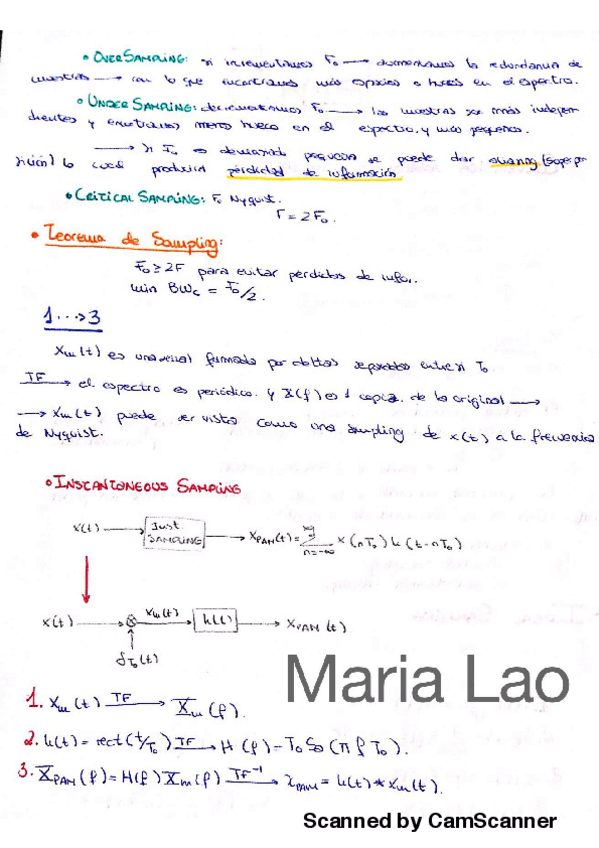 • OVERSAMPLING: si incrementamos Fo ⟶ aumentamos la redundancia de
muestras ⟶ con lo que encontramos más espacios o huecos en el espectro.
• UNDERSAMPLING: decrementamos Fo ⟶ las muestras son más indepen
dientes y encontramos menos hueco en el espectro, y más pequeños.
⟶ si Fo es demasiado pequeña se puede dar aliasing (superpo
sición) lo cual produciría pérdidas de información
• CRITICAL SAMPLING: Fo Nyquist.
F = 2Fo.
• Teorema de Sampling:
Fo ≥ 2F para evitar pérdidas de infor.
min BWc = Fo/2.
1 --> 3
Xm(t) es una señal formada por deltas separadas entre sí To
TF ⟶ el espectro es periódico. y X(f) es 1 copia de la original ⟶
⟶ Xm(t) puede ser vista como una sampling de x(t) a la frecuencia
de Nyquist.
• INSTANTONEOUS SAMPLING
x(t) ⟶ Just SAMPLING ⟶ XPAM(t) = ∑ n=-∞ x(nTo) h(t-nTo)
x(t) ⟶ ⊗ Xm(t) ⟶ h(t) ⟶ XPAM(t)
δTo(t)
1. Xm(t) TF ⟶ Xm(f).
2. h(t) = rect(t/To) TF ⟶ H(f) = To Sa(π f To).
3. XPAM(f) = H(f) Xm(f) TF⁻¹ ⟶ xPAM = h(t) * xm(t).
Maria Lao
Scanned by CamScanner